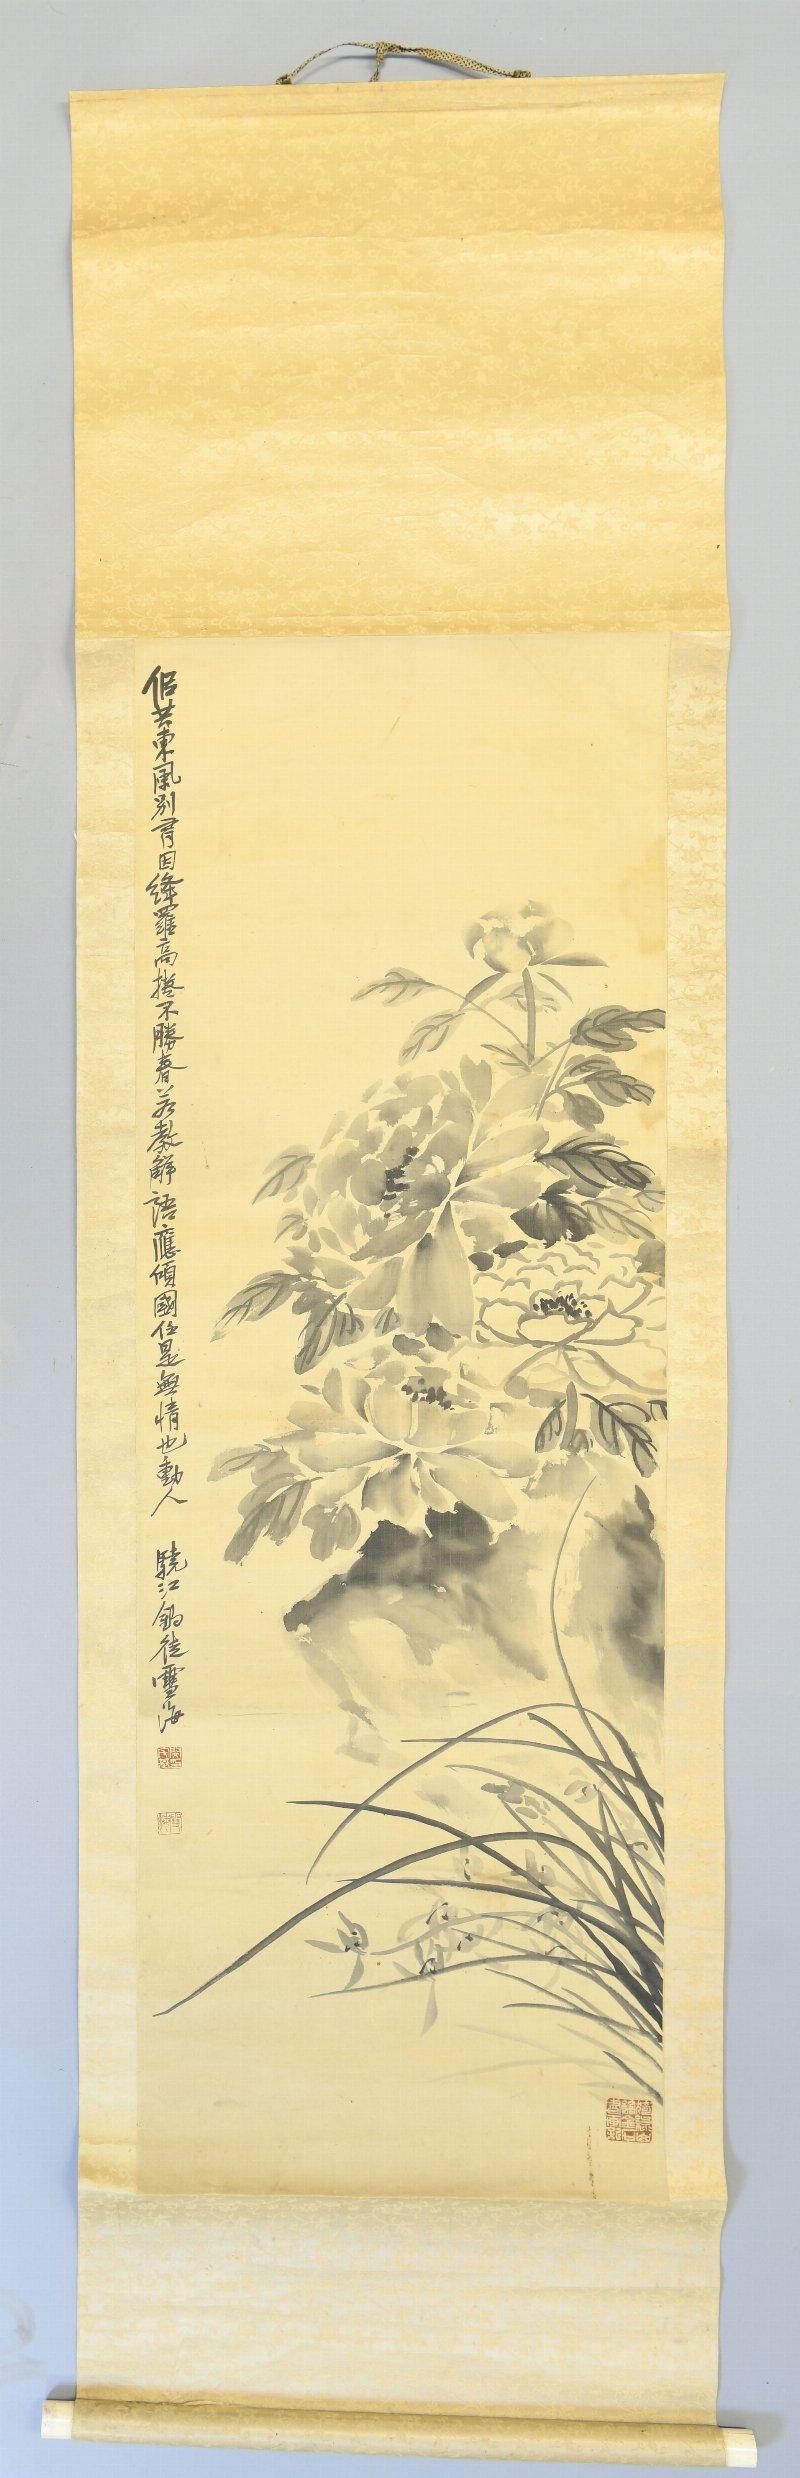 侶共東風別有因絳羅高捲不勝春若教解語應傾國任是無情也動人
驍江釣徒雪海